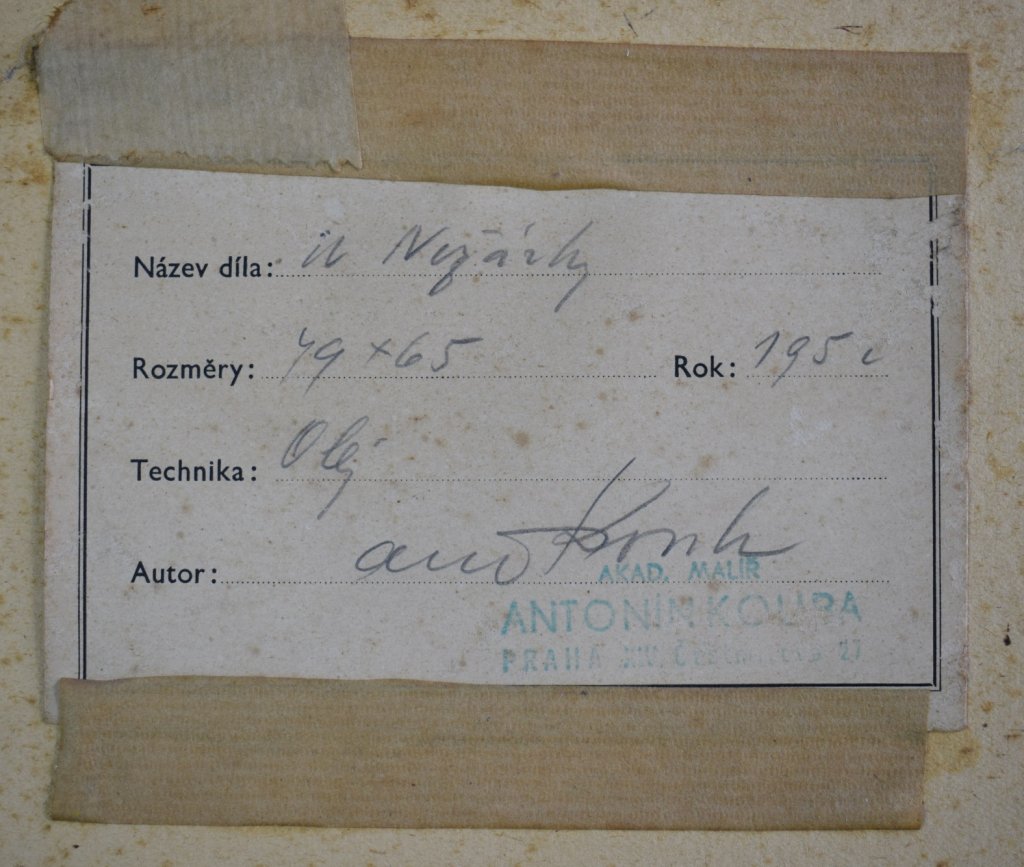 Název díla: U Nežárky
Rozměry: 79 x 65 Rok: 195
Technika: Olej
Autor:
AKAD. MALÍŘ
ANTONÍN KOUBA
PRAHA 27